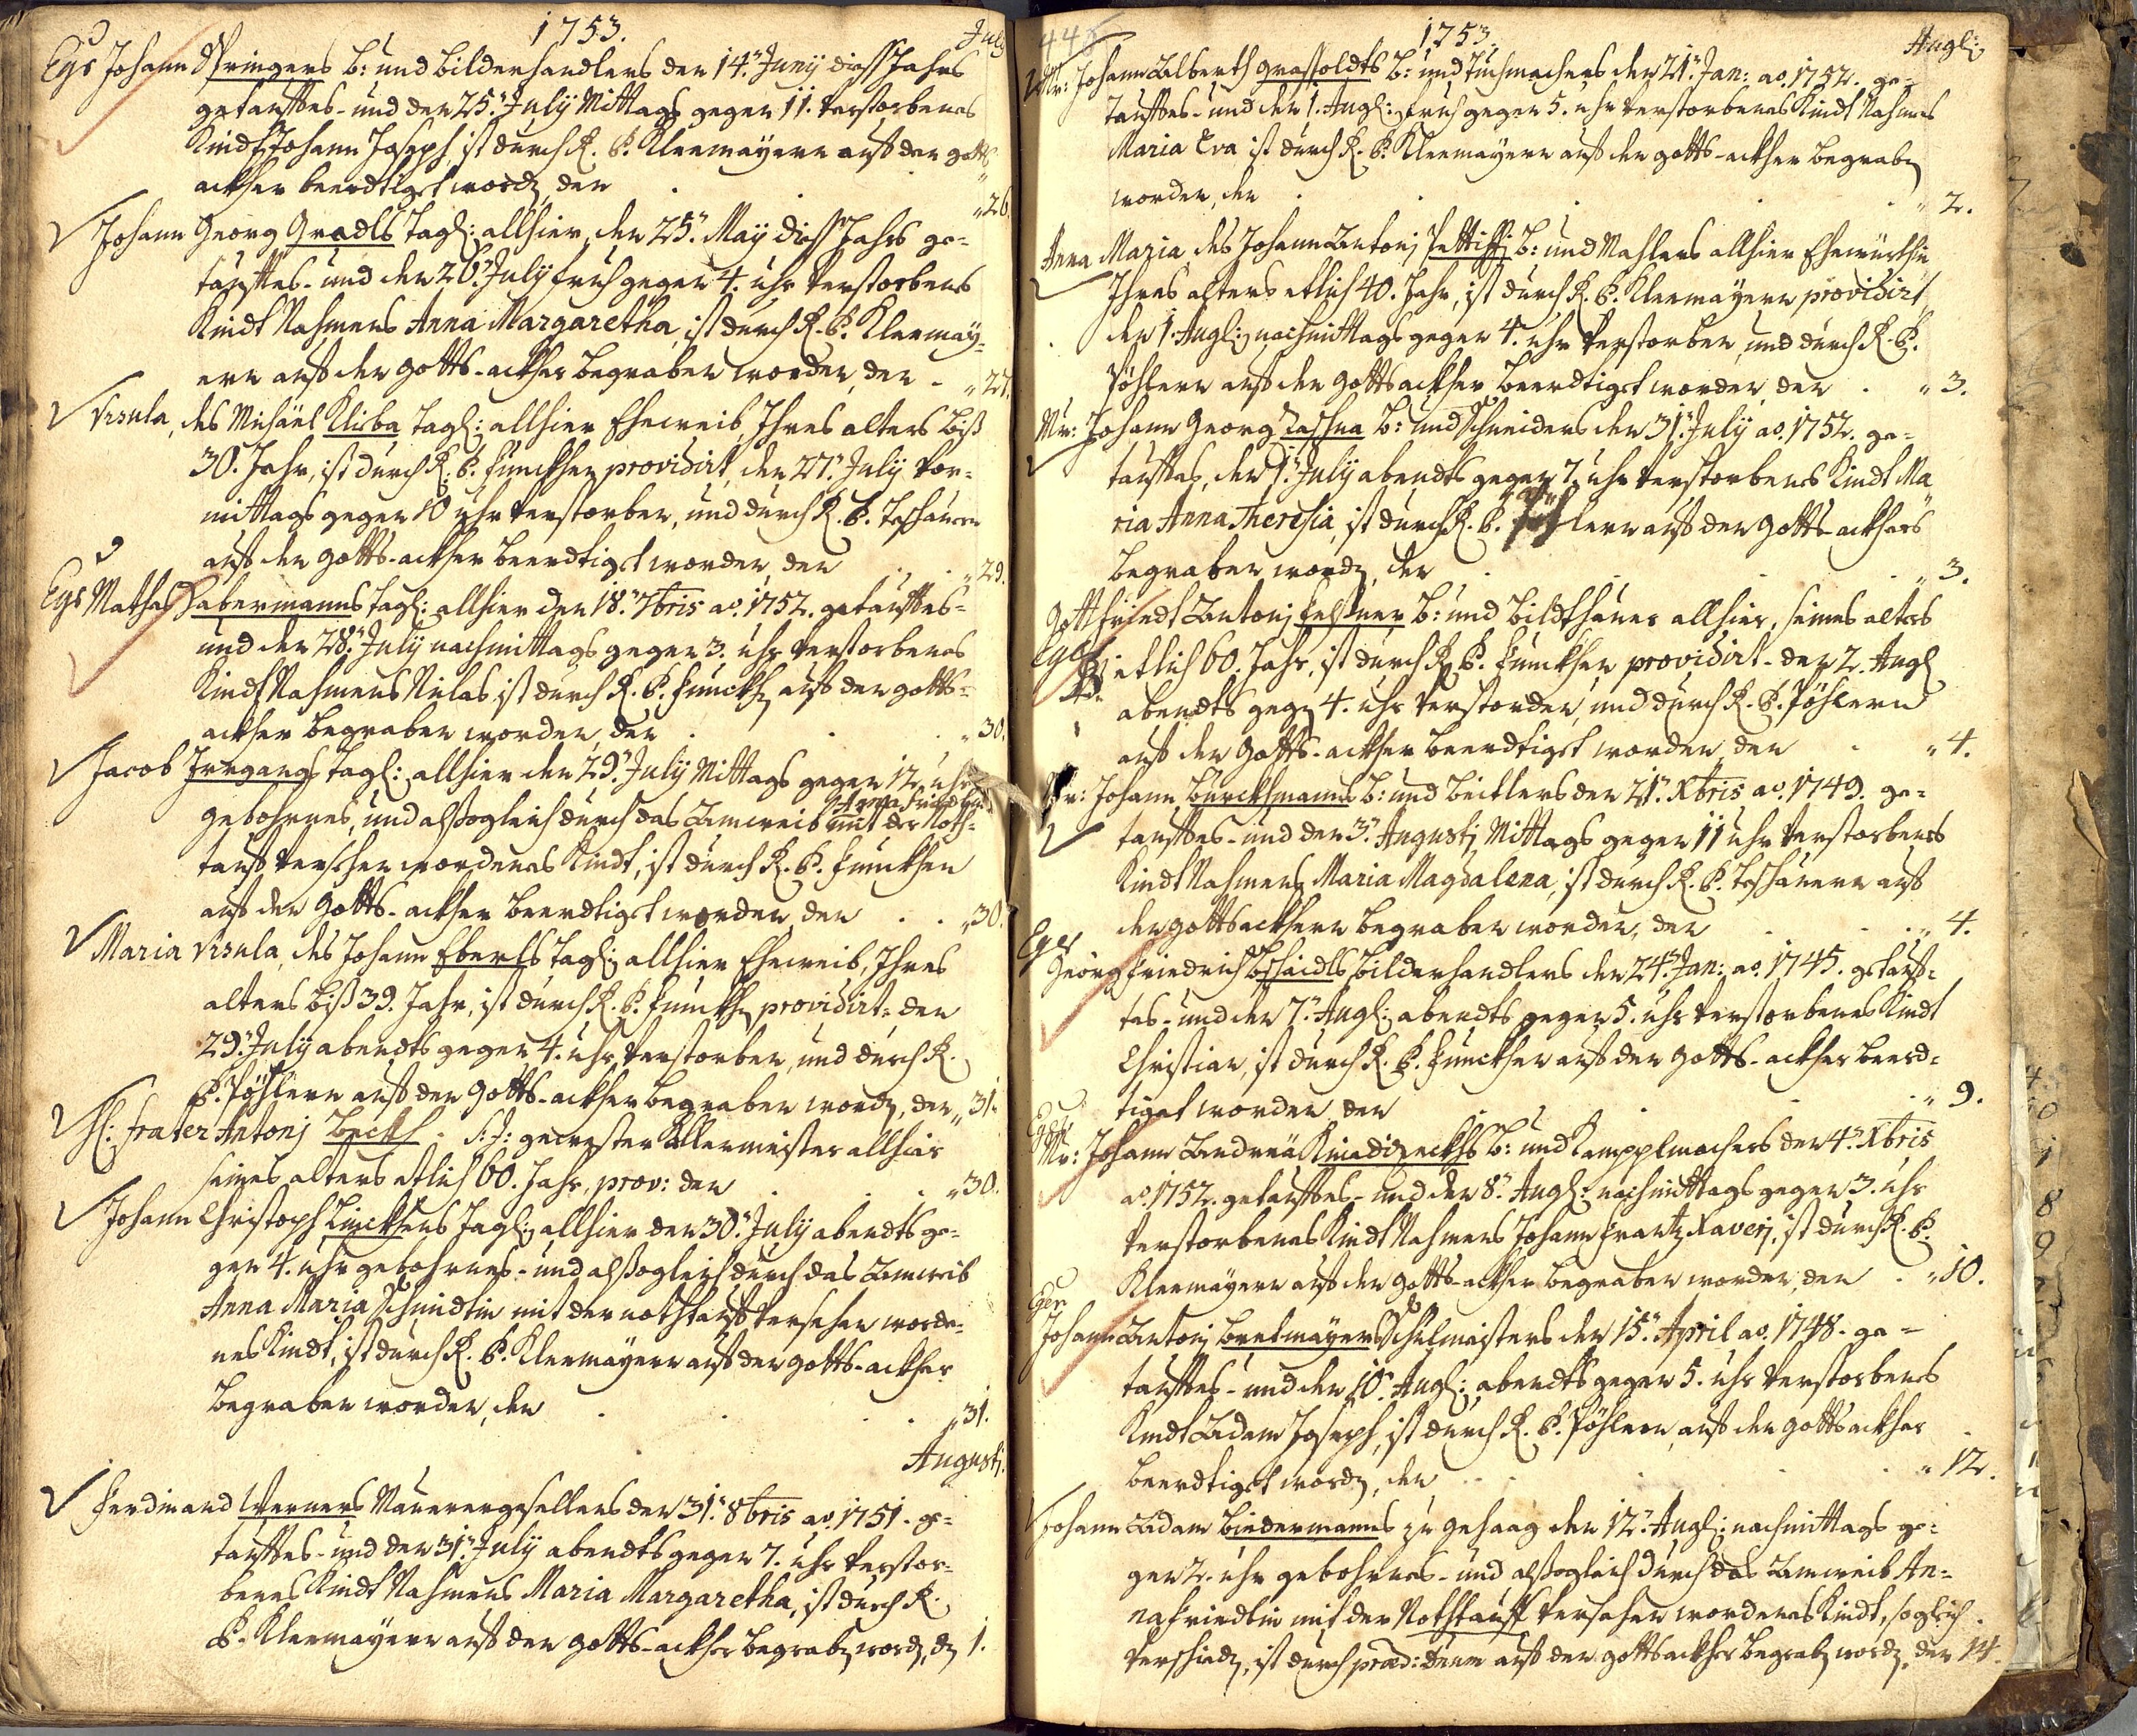 1753.
July
Egr Johann Springers b: und bilderhandlers den 14. Junÿ diess Jahrs
getaufftes- und den 25. Julÿ Mittags gegen 11. verstorbenes
Kindt Johann Joseph, ist durch R. P. Kleemaÿern auß den gotts
ackher beerdtiget word den 26.
Johann Georg Gradls tagl: allhier, den 25. Maÿ diess Jahrs ge-
taufftes- und den 26. Julÿ fruh gegen 4. uhr verstorbenes
Kindt Nahmens Anna Margaretha, ist durch R. P. Kleemaÿ-
ern auß den gotts-ackher begraben worden, den 27.
Ursula, des Michäel Klieba tagl: allhier Eheweib, Ihres alters biß
30. Jahr, ist durch R. P. Funckhen providirt, den 27. Julÿ vor-
mittags gegen 10 uhr verstorben, und durch R. P. Teschauern
auß den gotts-ackher beerdtiget worden den 29.
Egr Mathes Habermanns tagl: allhier den 18. 7bris ao. 1752. getaufftes-
und den 28. Julÿ nachmittags gegen 3. uhr verstorbenes
Kindt Nahmens Niclas ist durch R. P. Funckh auß den gotts-
ackher begraben worden, den 30.
Jacob Irrgangs tagl: allhier den 29. Julÿ Mittags gegen 12. uhr
gebohrnes, und alßogleich durch das Amweib Anna Friedlin mit der Noth-
tauf versehen wordenes Kindt, ist durch R. P. Funckhen
auß den Gotts-ackher beerdtiget worden, den 30.
Maria Ursula, des Johann Eberls tagl: allhier Eheweib, Ihres
alters biß 39. Jahr, ist durch R. P. Funckh providirt- den
29. Julÿ abendts gegen 4. uhr, verstorben, und durch R.
P. Pöhlern auß den Gotts-ackher begraben word, den 31.
Hl: Frater Antonj Beckh S: J: gewester Kellermeister allhier
seines alters etlich 60. Jahr, prov: den 30.
Johann Christoph Linckhens tagl: allhier den 30. Julÿ abendts ge-
gen 4. uhr gebohrnes- und alßogleich durch das Amweib
Anna Maria Schmidtin mit der nothtauf versehen worde-
nes Kindt, ist durch R. P. Kleemaÿern auß den gotts-ackher
begraben worden, den 31.
Augusti.
Ferdinand Werners Maurergesellens den 31. 8bris ao. 1751. ge-
taufftes- und den 31. Julÿ abendts gegen 7. uhr verstor-
benes Kindt Nahmens Maria Margaretha, ist durch R.
P. Kleemaÿern auß den gotts-ackher begrab word, d 1.
1753.
Augl:
Mr: Johann Alberth Grassoldts b: und tuchmachers den 21. Jan: ao. 1752. ge-
taufftes- und den 1. Augl: fruh gegen 5. uhr verstorbenes Kindt Nahmens
Maria Eva ist durch R. P. Kleemaÿern auß den gotts-ackher begrab
worden, den 2.
Anna Maria des Johann Antonj b: und Mahlers allhier Ehewürthin
Ihres alters etlich 40. Jahr, ist durch R. P. Kleemaÿern providirt
den 1. Augl: nachmittags gegen 4. uhr verstorben, und durch R. P.
Pöhlern auß den gottsackher beerdtiget worden, den 3.
Mr: Johann Georg b: und schneiders den 31. Julÿ ao. 1752. ge-
taufftes, den 1. Julÿ abendts gegen 7. uhr verstorbenes Kindt Ma
ria Anna Theresia, ist durch R. P. Pöhlern auß den Gotts-ackher
begraben word, den 3.
Gottfriedt Antonj b: und bildthauer allhier, seines alters
Egr etlich 60. Jahr, ist durch R. P. Funckhen providirt- den 2. Augl
abendts geg 4. uhr verstorben, und durch R. P. Pöhlern
auß den Gotts-ackher beerdtiget worden, den 4.
Mr: Johann Burckhmanns b: und beitlers den 21. Xbris ao. 1749. ge-
taufftes- und den 3. Augusti Mittags gegen 11 uhr verstorbenes
Kindt Nahmens Maria Magdalena, ist durch R. P. Teschauern auß
den gottsackhern begraben worden, den 4.
Egr
Georg Friedrich bilderhandlers den 24. Jan: ao. 1745. getauff-
tes- und den 7. Augl: abendts gegen 5. uhr verstorbenes Kindt
Christian, ist durch R. P. Funckhen auß den Gotts-ackher beerd-
tiget worden den 9.
Egr
Mr: Johann Andreä b: und kampplmachers den 4. Xbris
ao. 1752. getaufftes- und den 8. Augl: nachmittags gegen 3. uhr
verstorbenes Kindt Nahmens Johann Frantz Xaverj, ist durch R. P.
Kleemaÿern auß den gotts-ackher begraben worden, den 10.
Johann Antonj Brelmaÿers Schulmeisters den 15. April ao. 1748. ge-
taufftes- und den 10. Augl: abendts gegen 5. uhr verstorbenes
Kindt Adam Joseph, ist durch R. P. Pöhlern, auß den gottsackher
beerdtiget word, den 12.
Johann Adam Biedermanns zu gehaag den 12. Augl: nachmittags ge-
gen 2. uhr gebohrnes- und alßogleich durch das Amweib An-
na Friedlin mit der Nothtauff versehen wordenes Kindt, sogleich
verschied, ist durch præd: Deum auß den gottsackher begrab word, den 14.